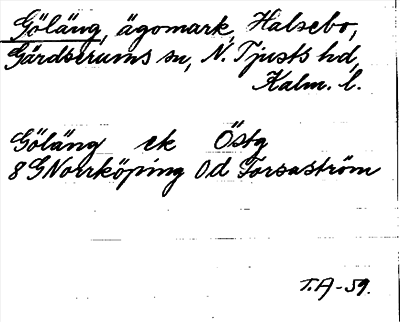 Göläng, ägomark, Halsebo,
Gärdserums sn, N. Tjusts hd,
Kalm. l.
Göläng ek Östg
8G Norrköping 0d Forsaström
T.A-59.